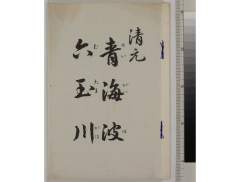 清元
青海波
六玉川